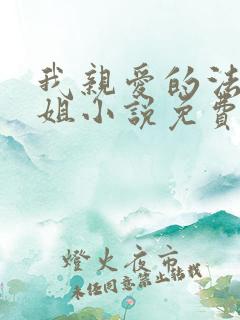 我親愛的法
姐小說免費
燈火夜市
未经同意禁止转载